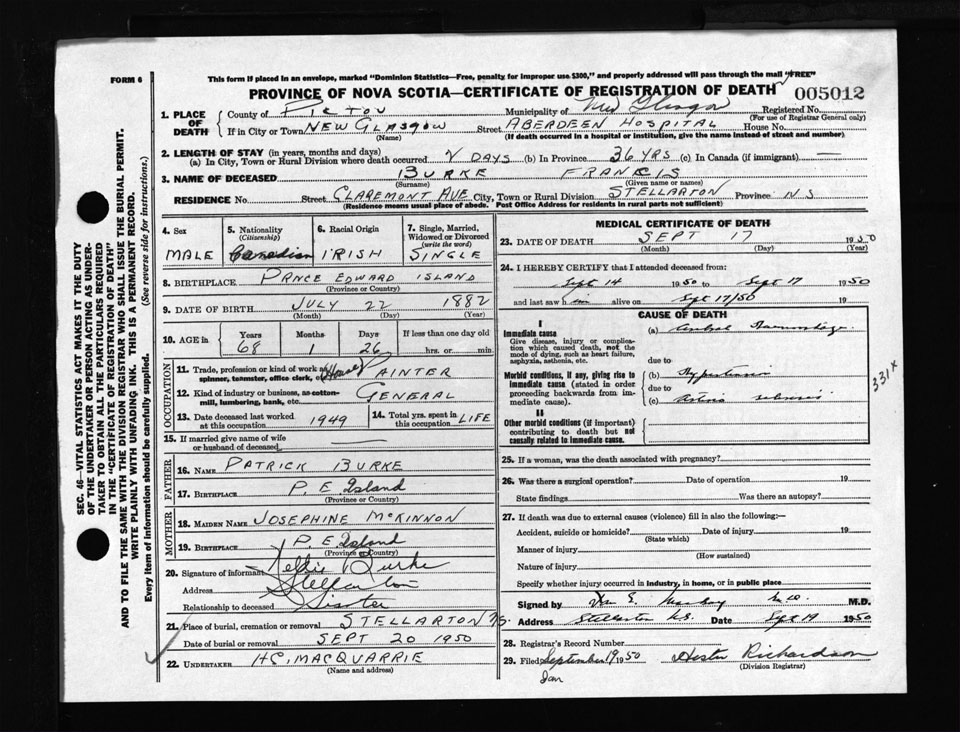 FORM 6
This form if placed in an envelope, marked "Dominion Statistics—Free, penalty for improper use $300," and properly addressed will pass through the mail "FREE"
PROVINCE OF NOVA SCOTIA—CERTIFICATE OF REGISTRATION OF DEATH
005012
1. PLACE OF DEATH
County of PICTOU Municipality of New Glasgow Registered No.
(For use of Registrar General only)
If in City or Town NEW GLASGOW Street ABERDEEN HOSPITAL House No.
(Name) (If death occurred in a hospital or institution, give the name instead of street and number)
2. LENGTH OF STAY (in years, months and days)
(a) In City, Town or Rural Division where death occurred 2 DAYS (b) In Province 36 YRS (c) In Canada (if immigrant) —
3. NAME OF DECEASED BURKE FRANCIS
(Surname) (Given name or names)
RESIDENCE No. Street CLAREMONT AVE City, Town or Rural Division STELLARTON Province N S
(Residence means usual place of abode. Post Office Address for residents in rural parts not sufficient)
4. Sex
MALE
5. Nationality
(Citizenship)
Canadian
6. Racial Origin
IRISH
7. Single, Married, Widowed or Divorced
(write the word)
SINGLE
8. BIRTHPLACE PRNCE EDWARD ISLAND
(Province or Country)
9. DATE OF BIRTH JULY 22 1882
(Month) (Day) (Year)
10. AGE IN Years Months Days If less than one day old
68 1 26 hrs. or min.
OCCUPATION
11. Trade, profession or kind of work as spinner, teamster, office clerk, etc. House PAINTER
12. Kind of industry or business, as cotton-mill, lumbering, bank, etc. GENERAL
13. Date deceased last worked at this occupation 1949
14. Total yrs. spent in this occupation LIFE
15. If married give name of wife or husband of deceased
FATHER
16. NAME PATRICK BURKE
17. BIRTHPLACE P. E Island
(Province or Country)
MOTHER
18. MAIDEN NAME JOSEPHINE McKINNON
19. BIRTHPLACE P. E Island
(Province or Country)
20. Signature of informant Nellie Burke
Address Stellarton
Relationship to deceased Sister
21. Place of burial, cremation or removal STELLARTON NS.
Date of burial or removal SEPT 20 1950
22. UNDERTAKER H C. MACQUARRIE
(Name and address)
MEDICAL CERTIFICATE OF DEATH
23. DATE OF DEATH SEPT 17 1950
(Month) (Day) (Year)
24. I HEREBY CERTIFY that I attended deceased from:
Sept 14 1950 to Sept 17 1950
and last saw him alive on Sept 17/50 19
CAUSE OF DEATH
I
Immediate cause
Give disease, injury or complication which caused death, not the mode of dying, such as heart failure, asphyxia, asthenia, etc.
(a) Cerebral Haemorrhage
due to
Morbid conditions, if any, giving rise to immediate cause (stated in order proceeding backwards from immediate cause).
(b) Hypertension
due to
(c) Arterio sclerosis
331X
II
Other morbid conditions (if important) contributing to death but not causally related to immediate cause.
25. If a woman, was the death associated with pregnancy?
26. Was there a surgical operation? Date of operation 19
State findings Was there an autopsy?
27. If death was due to external causes (violence) fill in also the following:—
Accident, suicide or homicide? Date of injury 19
(State which)
Manner of injury
(How sustained)
Nature of injury
Specify whether injury occurred in industry, in home, or in public place
Signed by M.D.
Address Stellarton N.S. Date Sept 19 1950
28. Registrar's Record Number
29. Filed September 19 1950 Hester Richardson
(Division Registrar)
SEC. 46—VITAL STATISTICS ACT MAKES IT THE DUTY
OF THE UNDERTAKER OR PERSON ACTING AS UNDER-
TAKER TO OBTAIN ALL THE PARTICULARS REQUIRED
IN THE "CERTIFICATE OF REGISTRATION OF DEATH"
AND TO FILE THE SAME WITH THE DIVISION REGISTRAR WHO SHALL ISSUE THE BURIAL PERMIT.
WRITE PLAINLY WITH UNFADING INK. THIS IS A PERMANENT RECORD.
Every item of information should be carefully supplied. (See reverse side for instructions.)